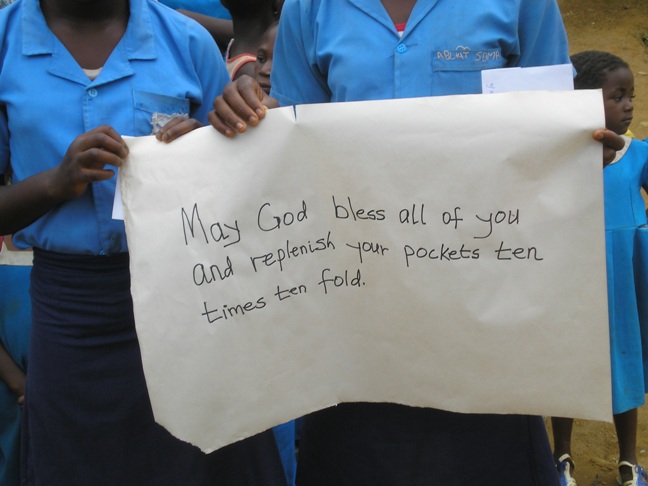 May God bless all of you
and replenish your pockets ten
times ten fold.